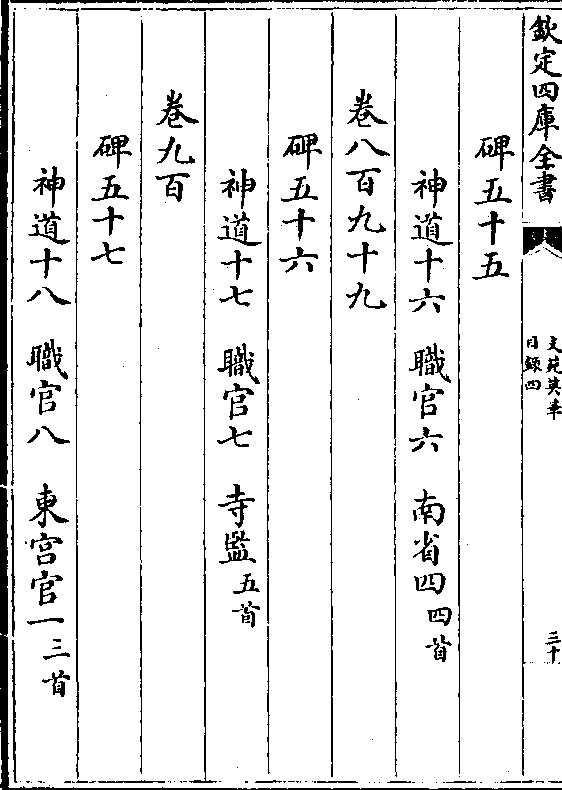 欽定四庫全書
文苑英華
目錄四
三十
碑五十五
神道十六 職官六 南省四四首
卷八百九十九
碑五十六
神道十七 職官七 寺監五首
卷九百
碑五十七
神道十八 職官八 東宮官一三首